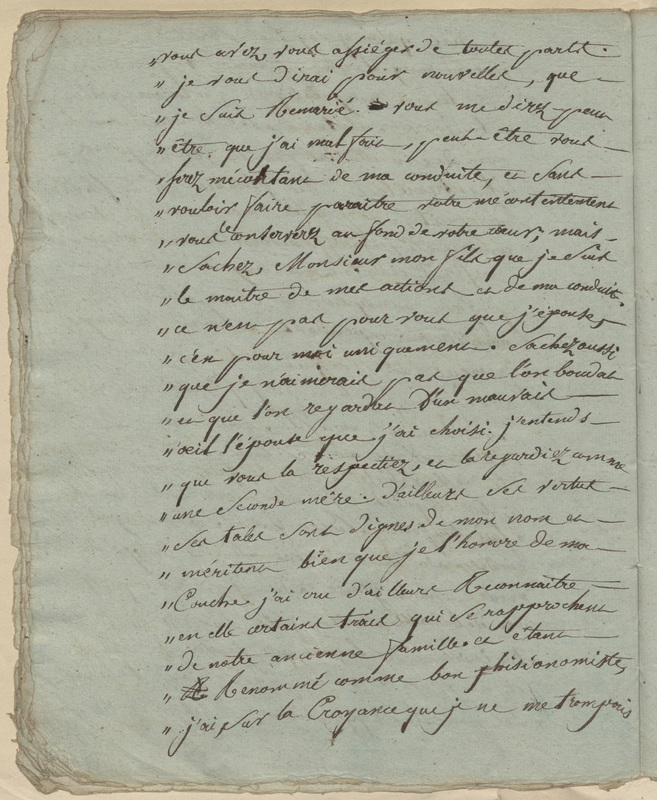 "vous avez vous assiéger de toutes parts.
" je vous dirai pour nouvelles, que –
" je suis Remarié. vous me direz peut
" être que j'ai mal fait, peut-être vous –
" serez mécontant de ma conduite, et sans –
" vouloir faire paraitre votre mécontentement
" vous le conserverez au fond de votre cœur, mais –
" Sachez, Monsieur mon fils que je suis
" le maitre de mes actions et de ma conduite.
" ce n'est pas pour vous que j'épouse,
" c'est pour moi uniquement. Sachez aussi
" que je n'aimerais pas que l'on boudat
" et que l'on regardat d'un mauvais –
" œil l'épouse que j'ai choisi. j'entends –
" que vous la respectiez, et la regardiez comme
" une seconde mère. d'ailleurs ses vertus –
" ses sont dignes de mon nom et –
" méritent bien que je l'honore de ma –
" Couche. j'ai cru d'ailleurs Reconnaitre –
" en elle certains traits qui se rapprochent
" de notre ancienne famille. et étant –
" Renommé comme bon phisionomiste,
" j'ai sur la Croyance que je ne me trompais